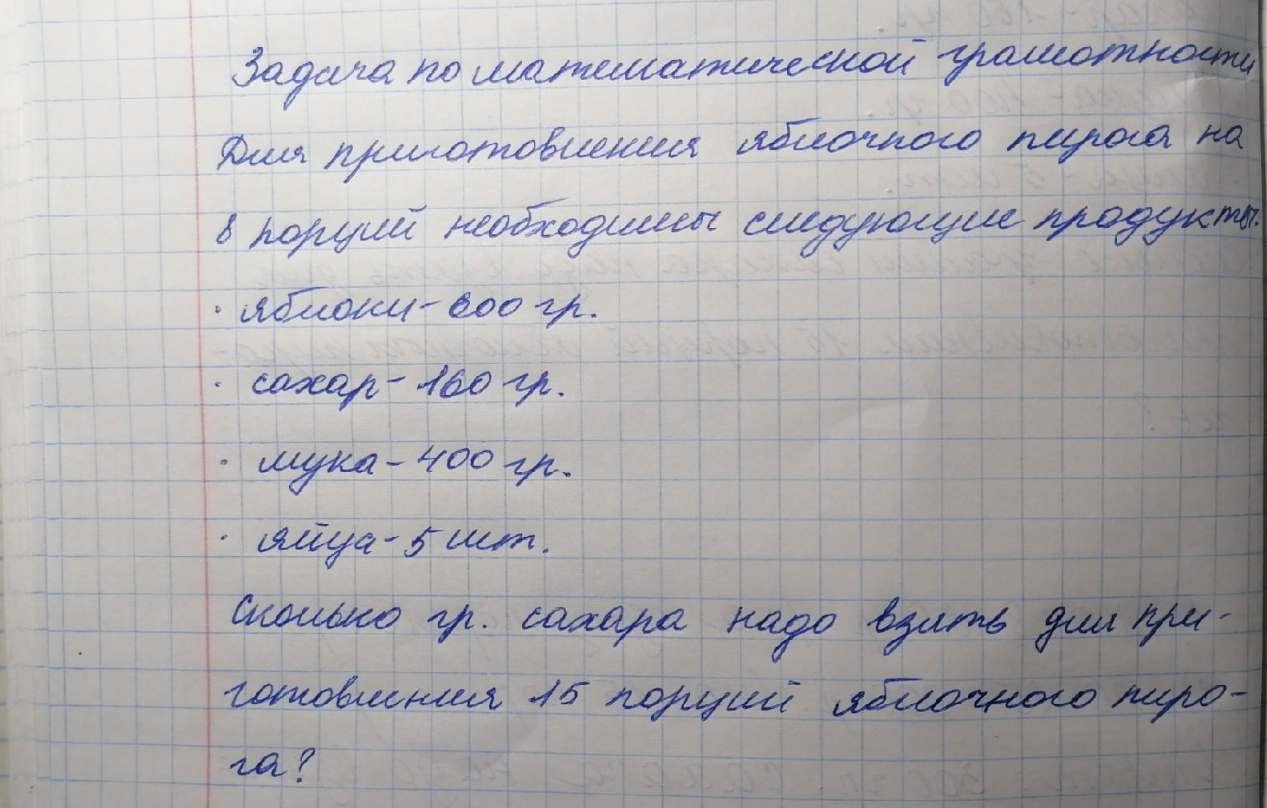 Задача по математической грамотности
Для приготовления яблочного пирога на
8 порций необходимы следующие продукты:
· яблоки - 600 гр.
· сахар - 160 гр.
· мука - 400 гр.
· яйца - 5 шт.
Сколько гр. сахара надо взять для при-
готовления 15 порций яблочного пиро-
га?